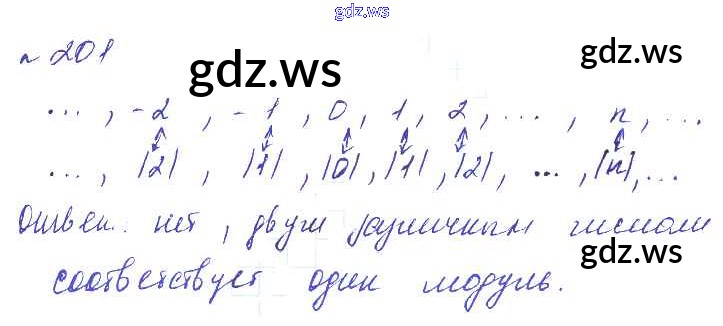 gdz.ws
№ 201
gdz.ws
..., -2, -1, 0, 1, 2, ..., n, ...
..., |2|, |1|, |0|, |1|, |2|, ..., |n|, ...
Ответ: нет, двум различным числам
gdz.ws
соответствует один модуль.
gdz.ws